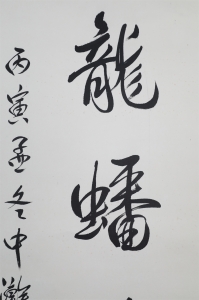 龍蟠
丙寅孟冬中瀚